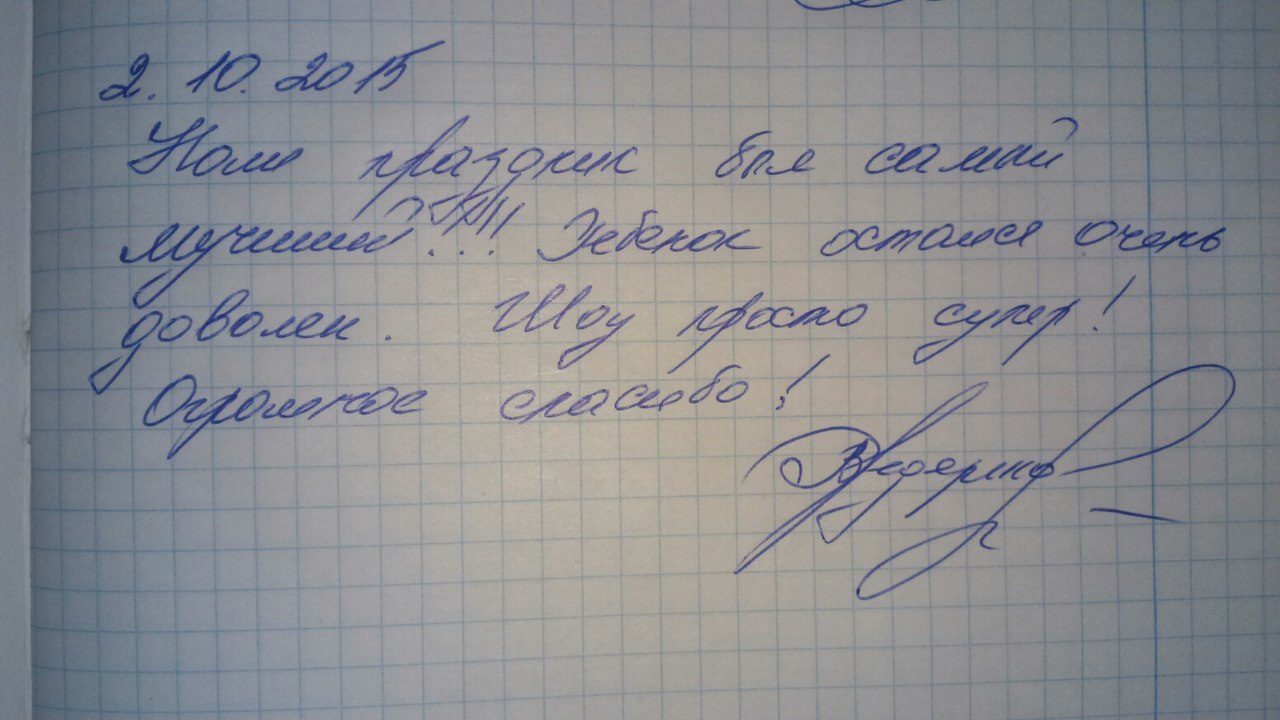 2.10.2015
Наш праздник был самый
лучший!!! Ребенок остался очень
доволен. Шоу просто супер!
Огромное спасибо!